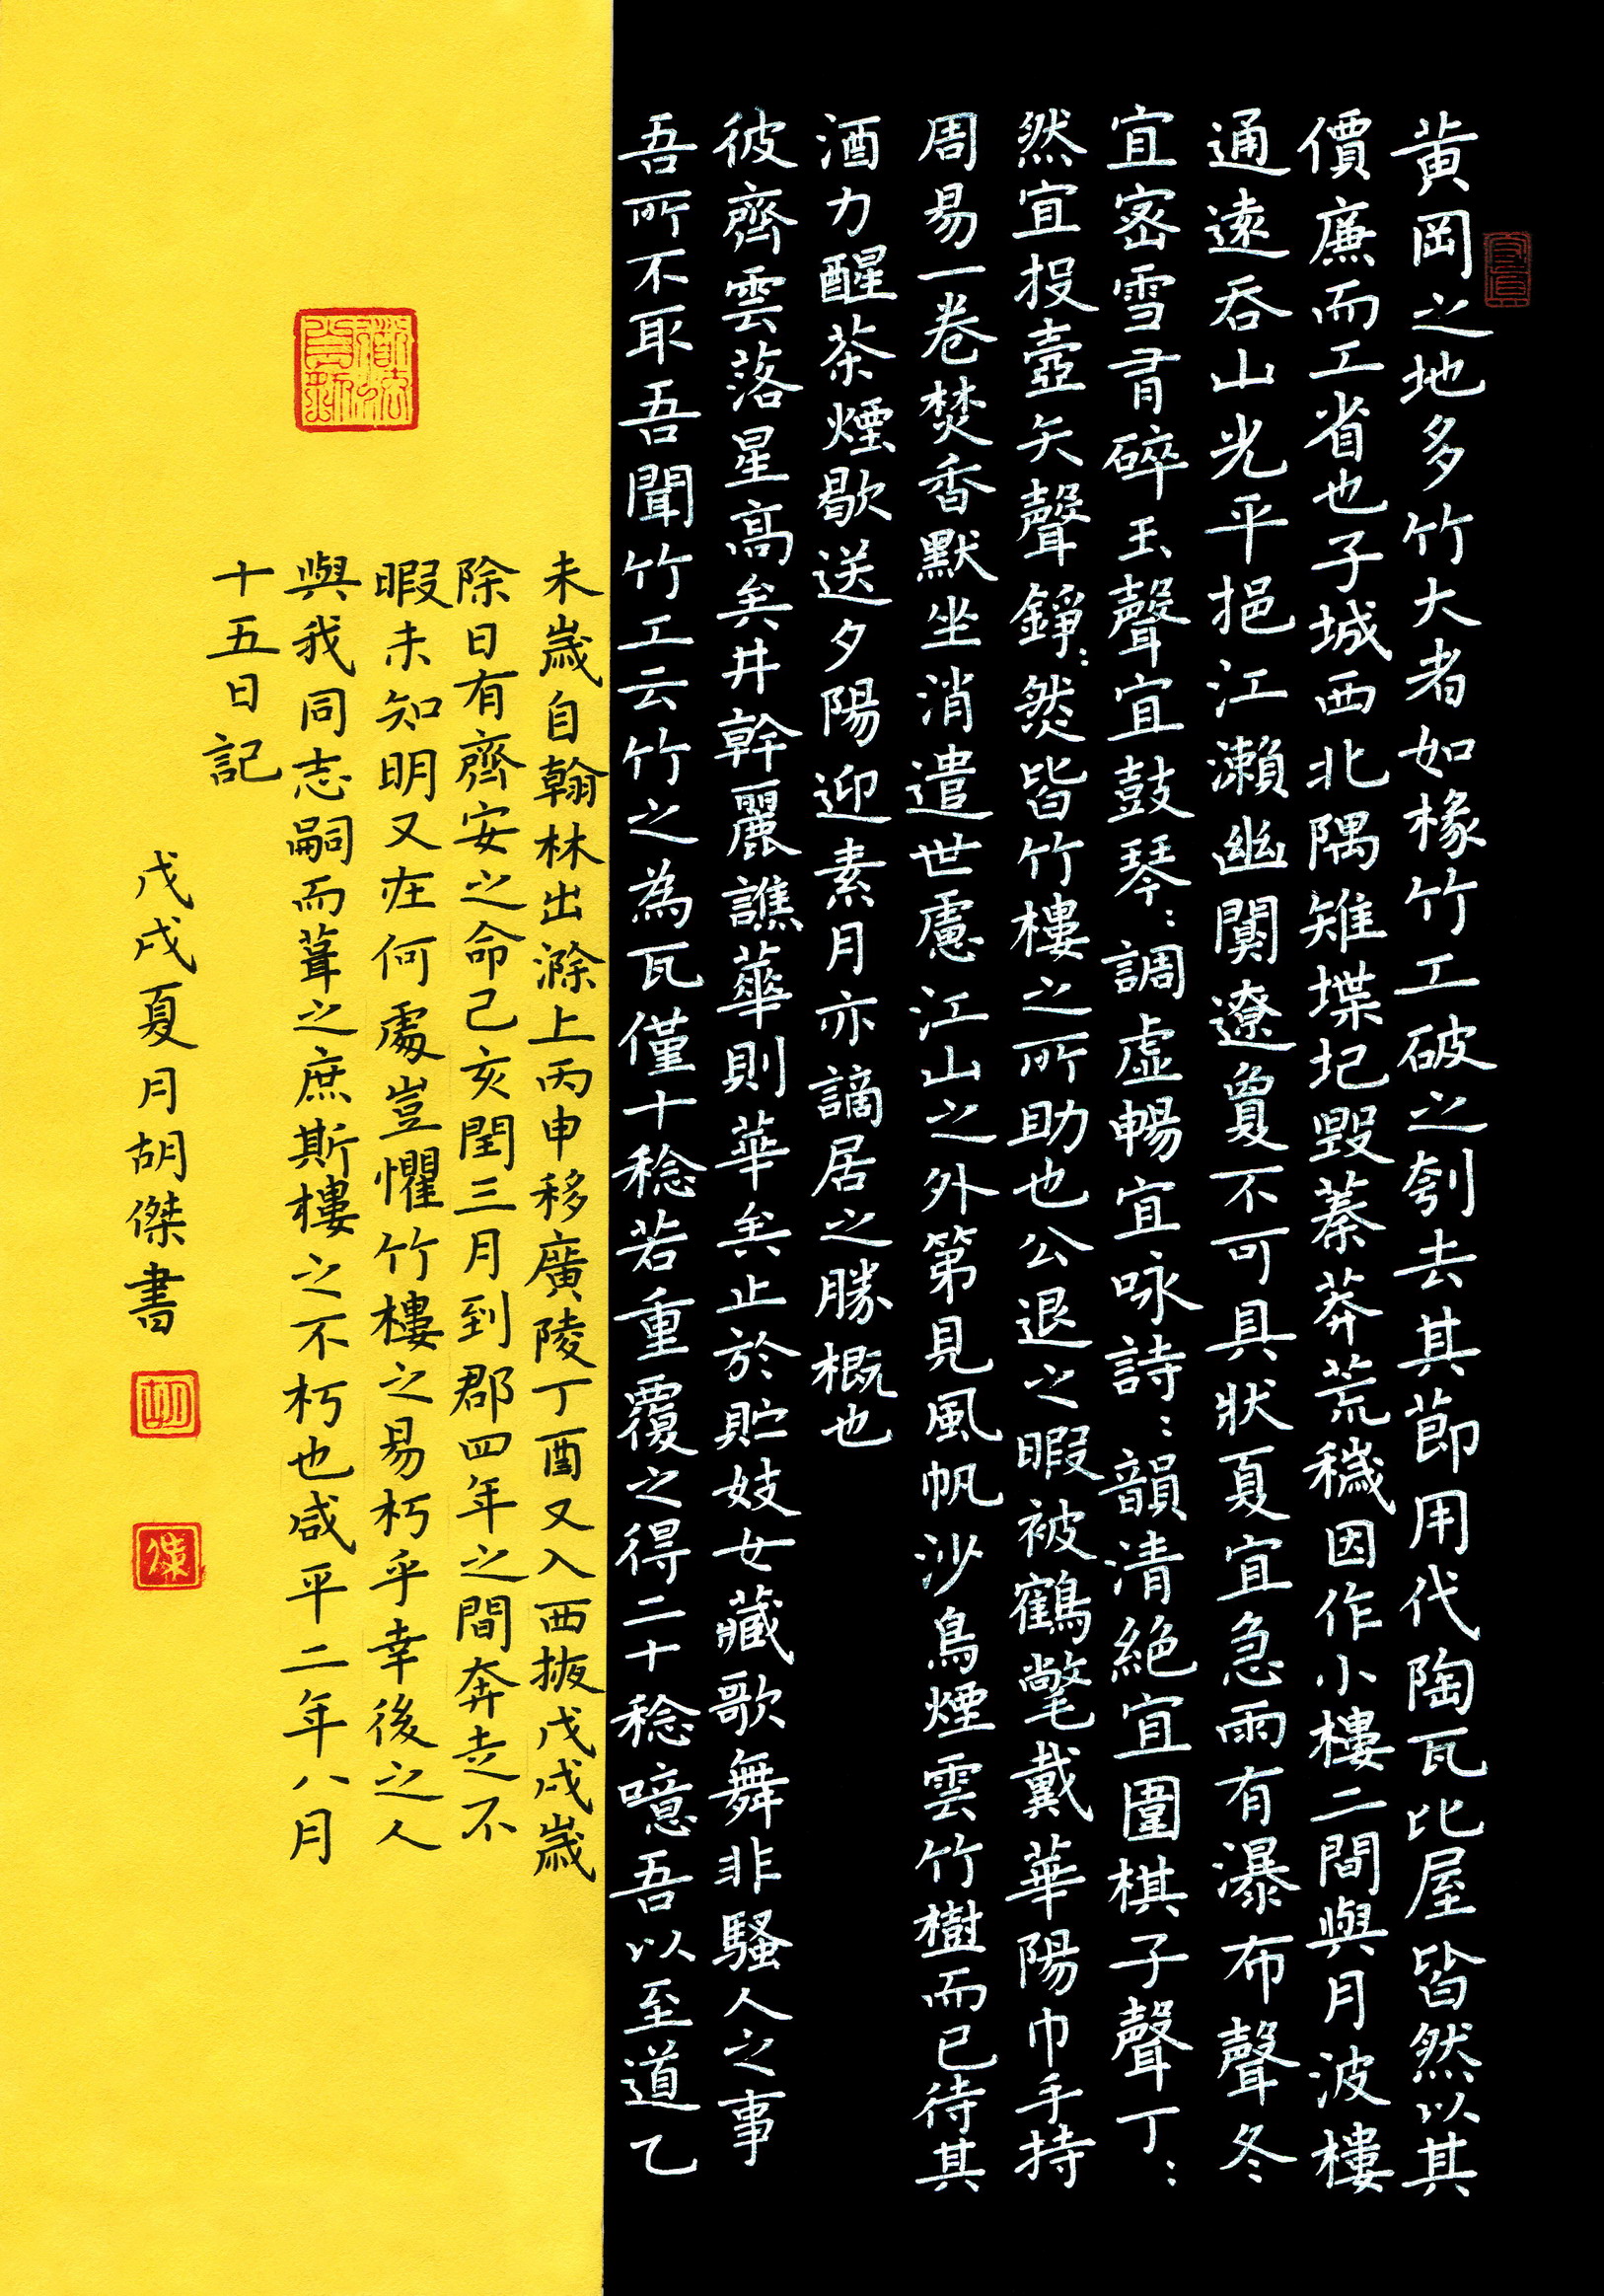 黄岡之地多竹大者如椽竹工破之刳去其節用代陶瓦比屋皆然以其
價廉而工省也子城西北隅雉堞圮毀蓁莽荒穢因作小樓二間與月波樓
通遠吞山光平挹江瀨幽闃遼敻不可具狀夏宜急雨有瀑布聲冬
宜密雪有碎玉聲宜鼓琴：調虛暢宜咏詩：韻清絕宜圍棋子聲丁：
然宜投壺矢聲錚：然皆竹樓之所助也公退之暇被鶴氅戴華陽巾手持
周易一卷焚香默坐消遣世慮江山之外第見風帆沙鳥煙雲竹樹而已待其
酒力醒茶煙歇送夕陽迎素月亦謫居之勝概也
彼齊雲落星高矣井幹麗譙華則華矣止於貯妓女藏歌舞非騷人之事
吾所不取吾聞竹工云竹之為瓦僅十稔若重覆之得二十稔噫吾以至道乙
未歲自翰林出滁上丙申移廣陵丁酉又入西掖戊戌歲
除日有齊安之命己亥閏三月到郡四年之間奔走不
暇未知明又在何處豈懼竹樓之易朽乎幸後之人
與我同志嗣而葺之庶斯樓之不朽也咸平二年八月
十五日記
戊戌夏月胡傑書
胡
傑